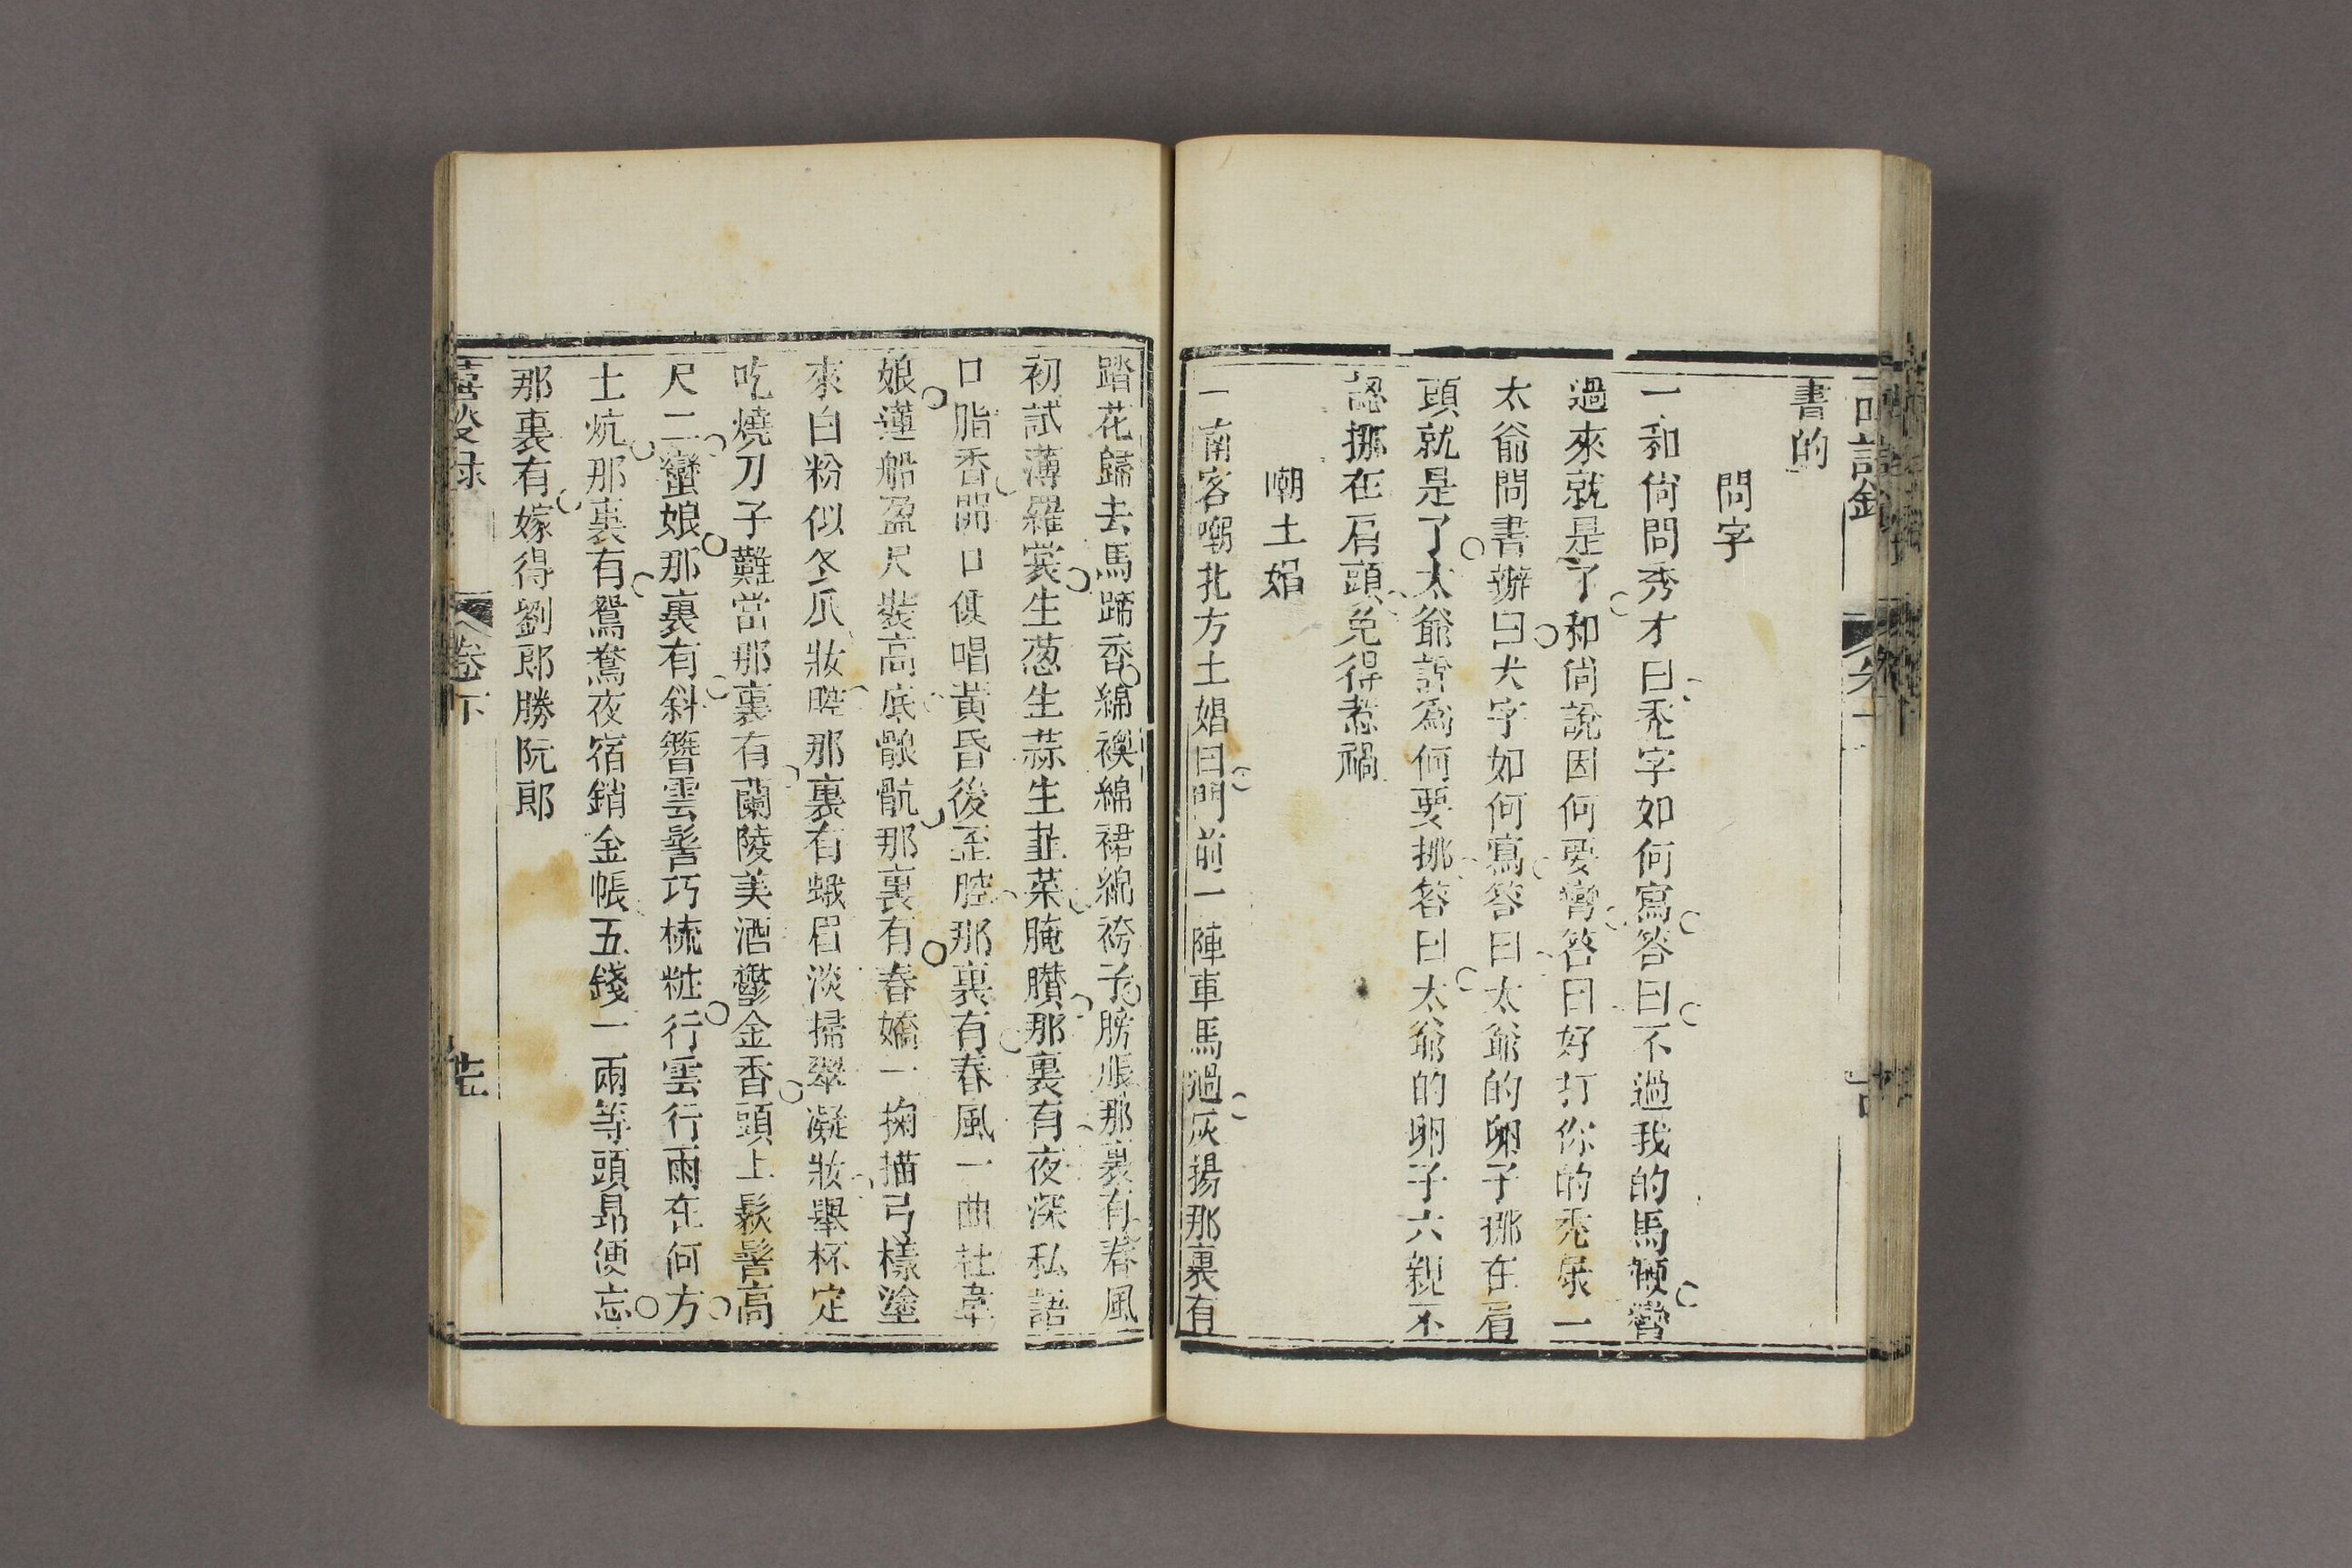 書的
問字
一和尙問秀才曰禿字如何寫答曰不過我的馬傾彎
過來就是了和尙說因何要彎答曰好打你的禿屁一
太爺問書辦曰犬字如何寫答曰太爺的卵子挪在肩
頭就是了太爺說爲何要挪答曰太爺的卵子六親不
認挪在肩頭免得惹禍
嘲土娼
一南客嘲北方土娼曰門前一陣車馬過灰揚那裏有
踏花歸去馬蹄香綿襖綿裙綿袴子膀脹那裏有春風
初試薄羅裳生葱生蒜生韭菜腌臢那裏有夜深私語
口脂香開口俱唱黃昏後歪腔那裏有春風一曲杜韋
娘蓮船盈尺裝高底骯髒那裏有春嬌一掬描弓樣塗
來白粉似冬瓜妝
那裏有蛾眉淡掃翠凝妝舉杯定
吃燒刀子難當那裏有蘭陵美酒鬱金香頭上鬆髻高
尺二蠻娘那裏有斜簪雲髻巧梳粧行雲行雨在何方
土炕那裏有鴛鴦夜宿銷金帳五錢一兩等頭昂便忘
那裏有嫁得劉郎勝阮郎
卷下